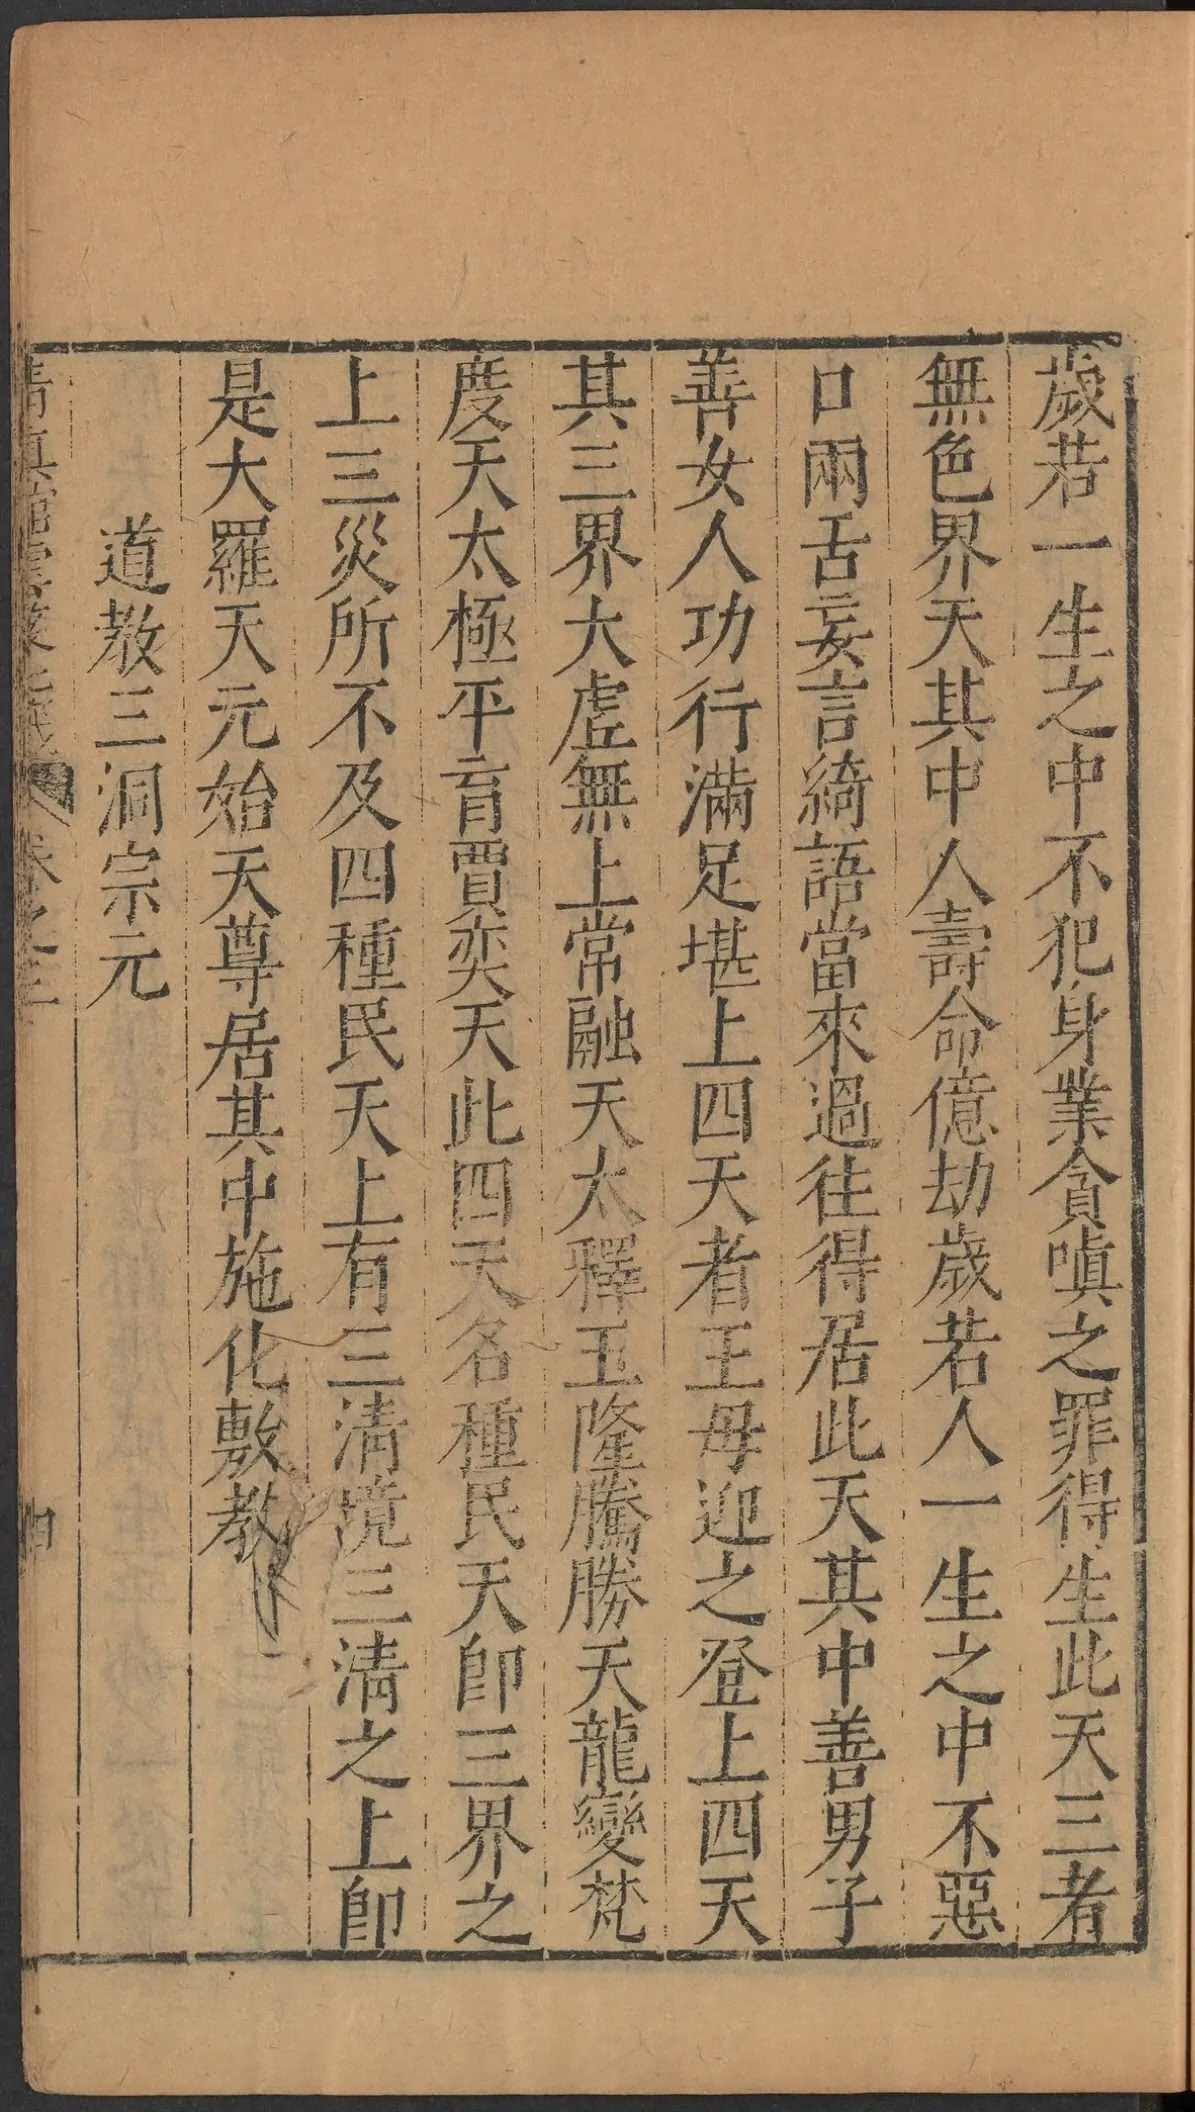 歲若一生之中不犯身業貪嗔之罪得生此天三者
無色界天其中人壽命億劫歲若人一生之中不惡
口兩舌妄言綺語當來過往得居此天其中善男子
善女人功行滿足堪上四天者王母迎之登上四天
其三界大虛無上常融天太釋玉隆騰勝天龍變梵
度天太極平育賈奕天此四天名種民天卽三界之
上三災所不及四種民天上有三清境三清之上卽
是大羅天元始天尊居其中施化敷教
道教三洞宗元